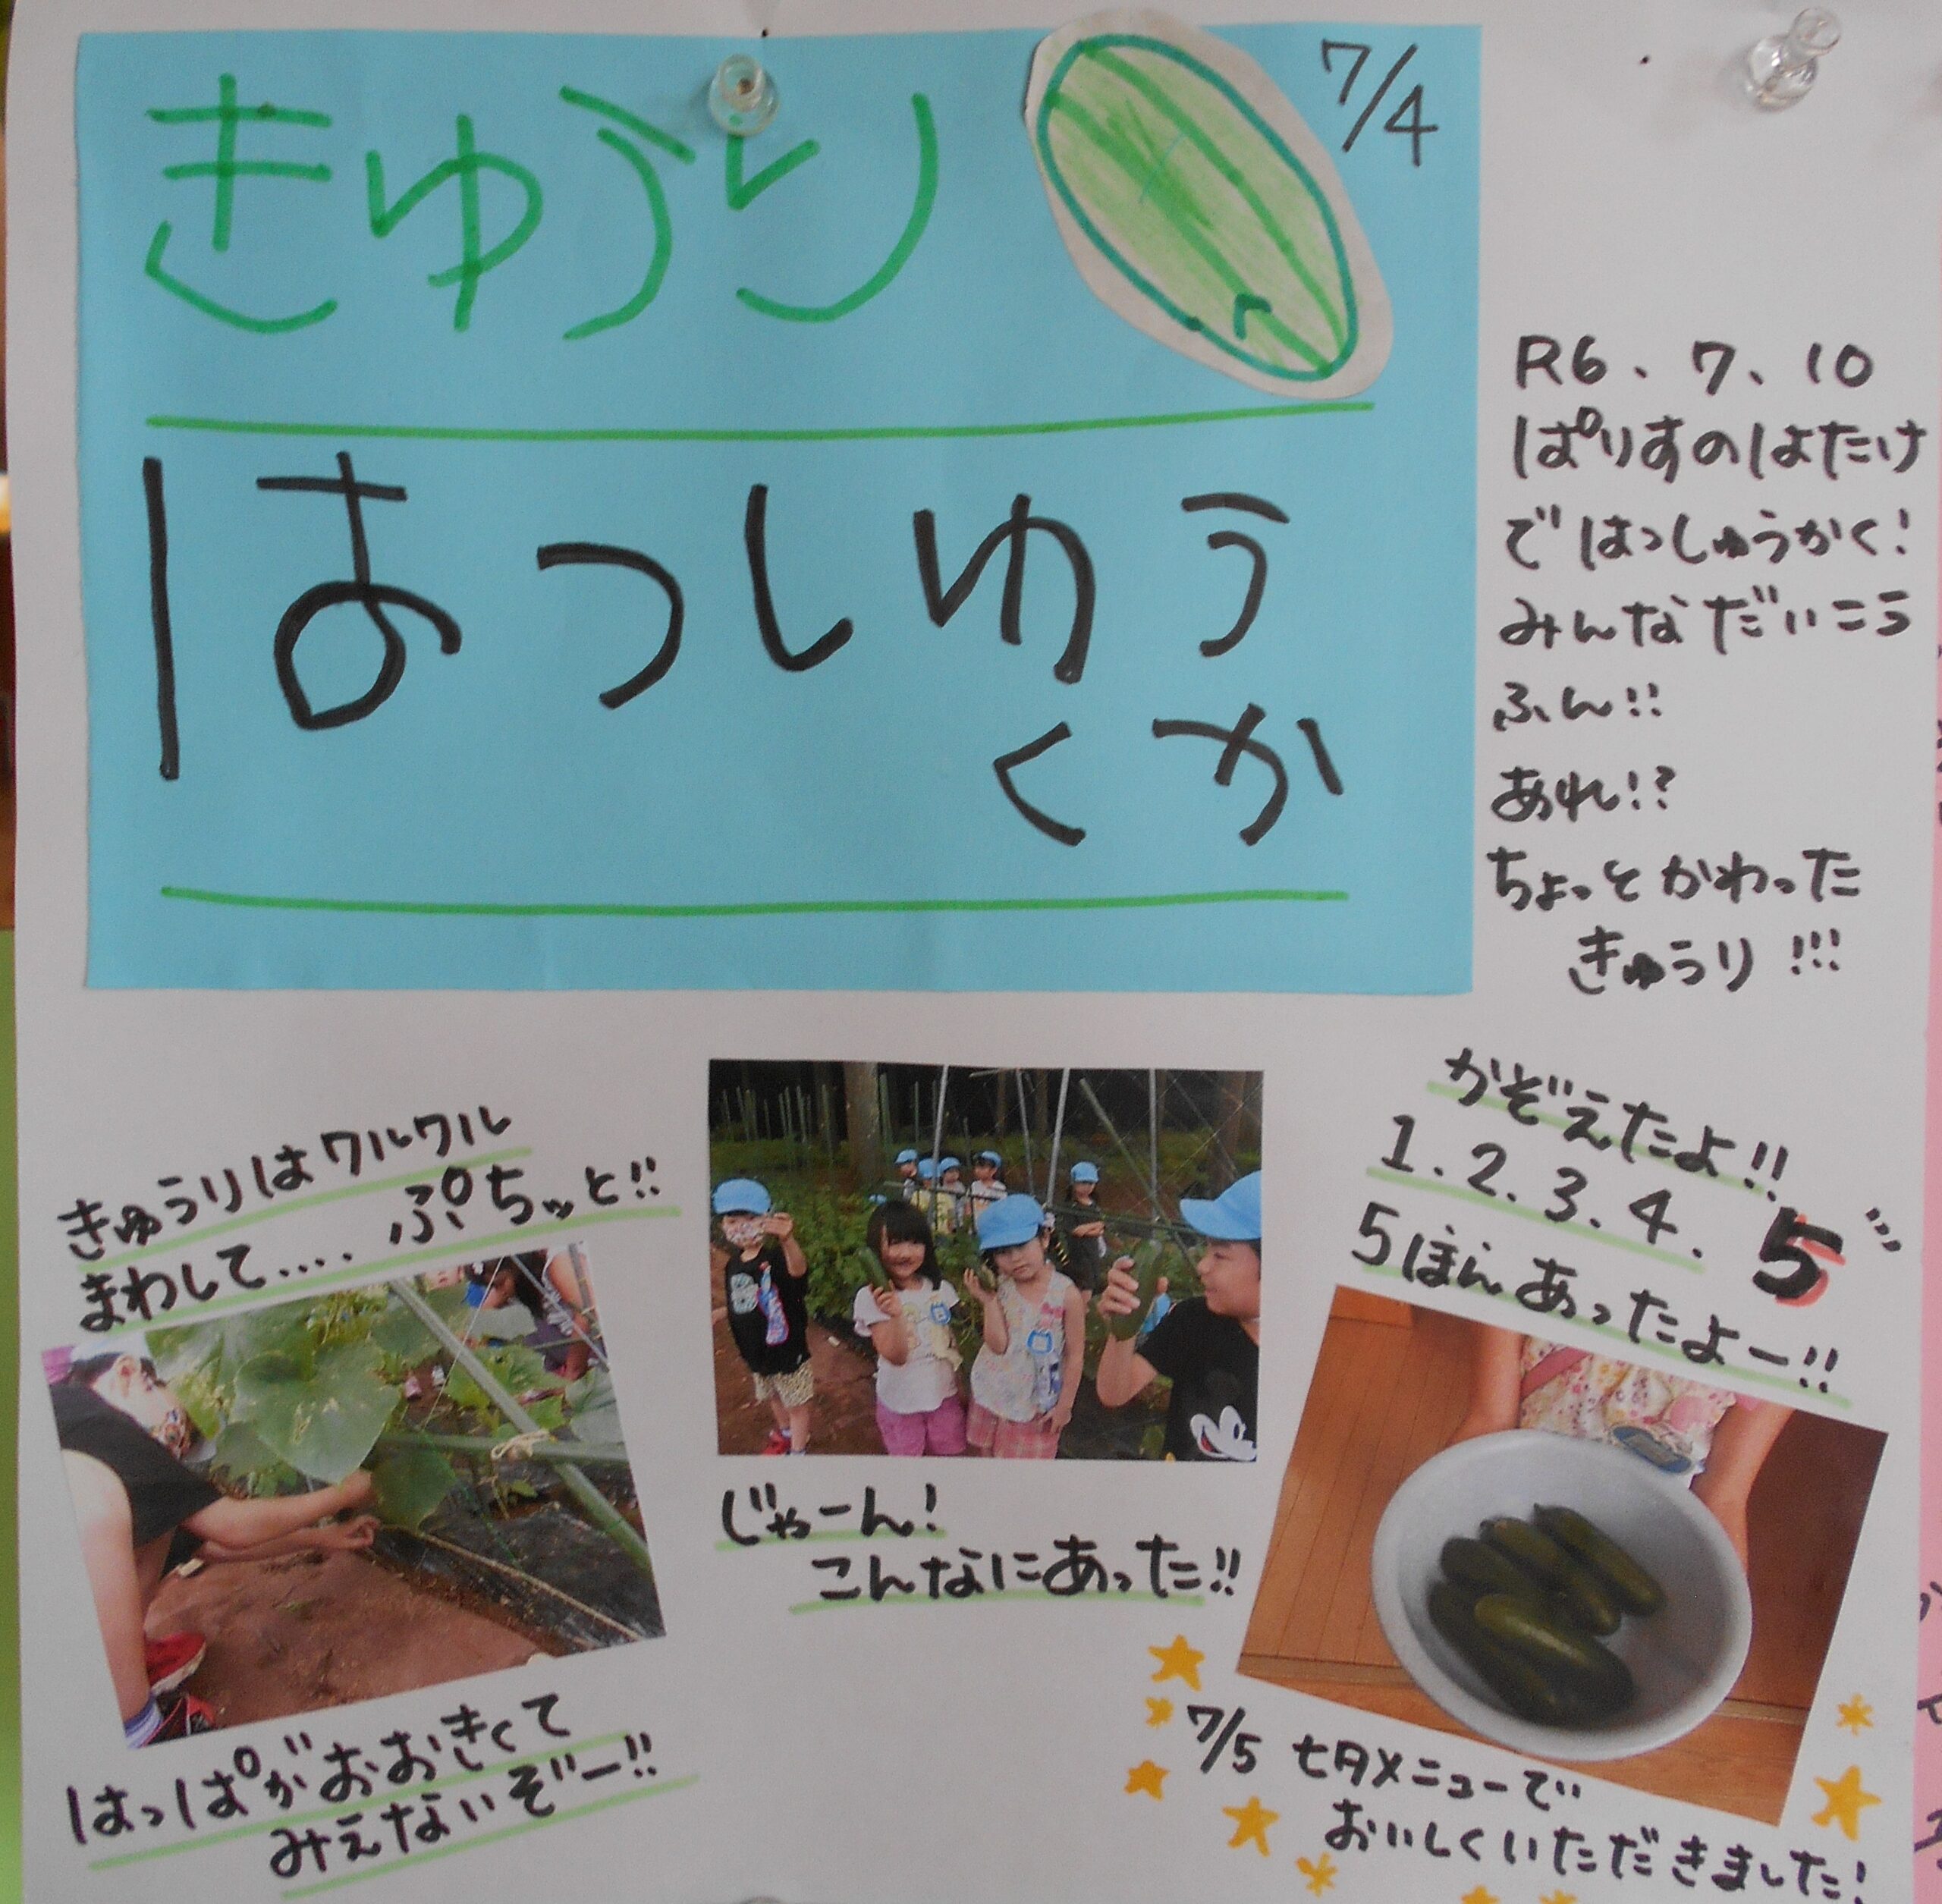 きゅうり
7/4
はつしゆう
くか
R6、7、10
ぱりすのはたけ
で はっしゅうかく!
みんな だいこう
ふん!!
あれ!?
ちょっと かわった
きゅうり!!!
きゅうりは クルクル
まわして.... ぷちッと!!
はっぱが おおきくて
みえないぞー!!
じゃーん!
こんなにあった!!
かぞえたよ!!
1.2.3.4. 5
5ほん あったよー!!
7/5 七夕メニューで
おいしくいただきました!